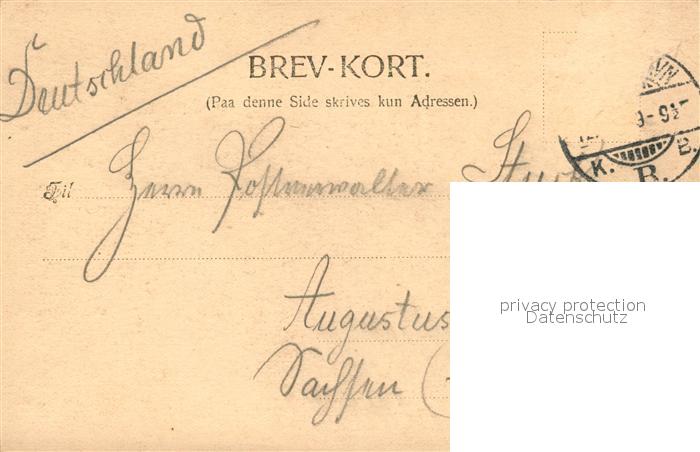 Deutschland
BREV-KORT.
(Paa denne Side skrives kun Adressen.)
K.
B.
B.
Til Herrn Postverwalter
Augustus
Sachsen (
privacy protection
Datenschutz